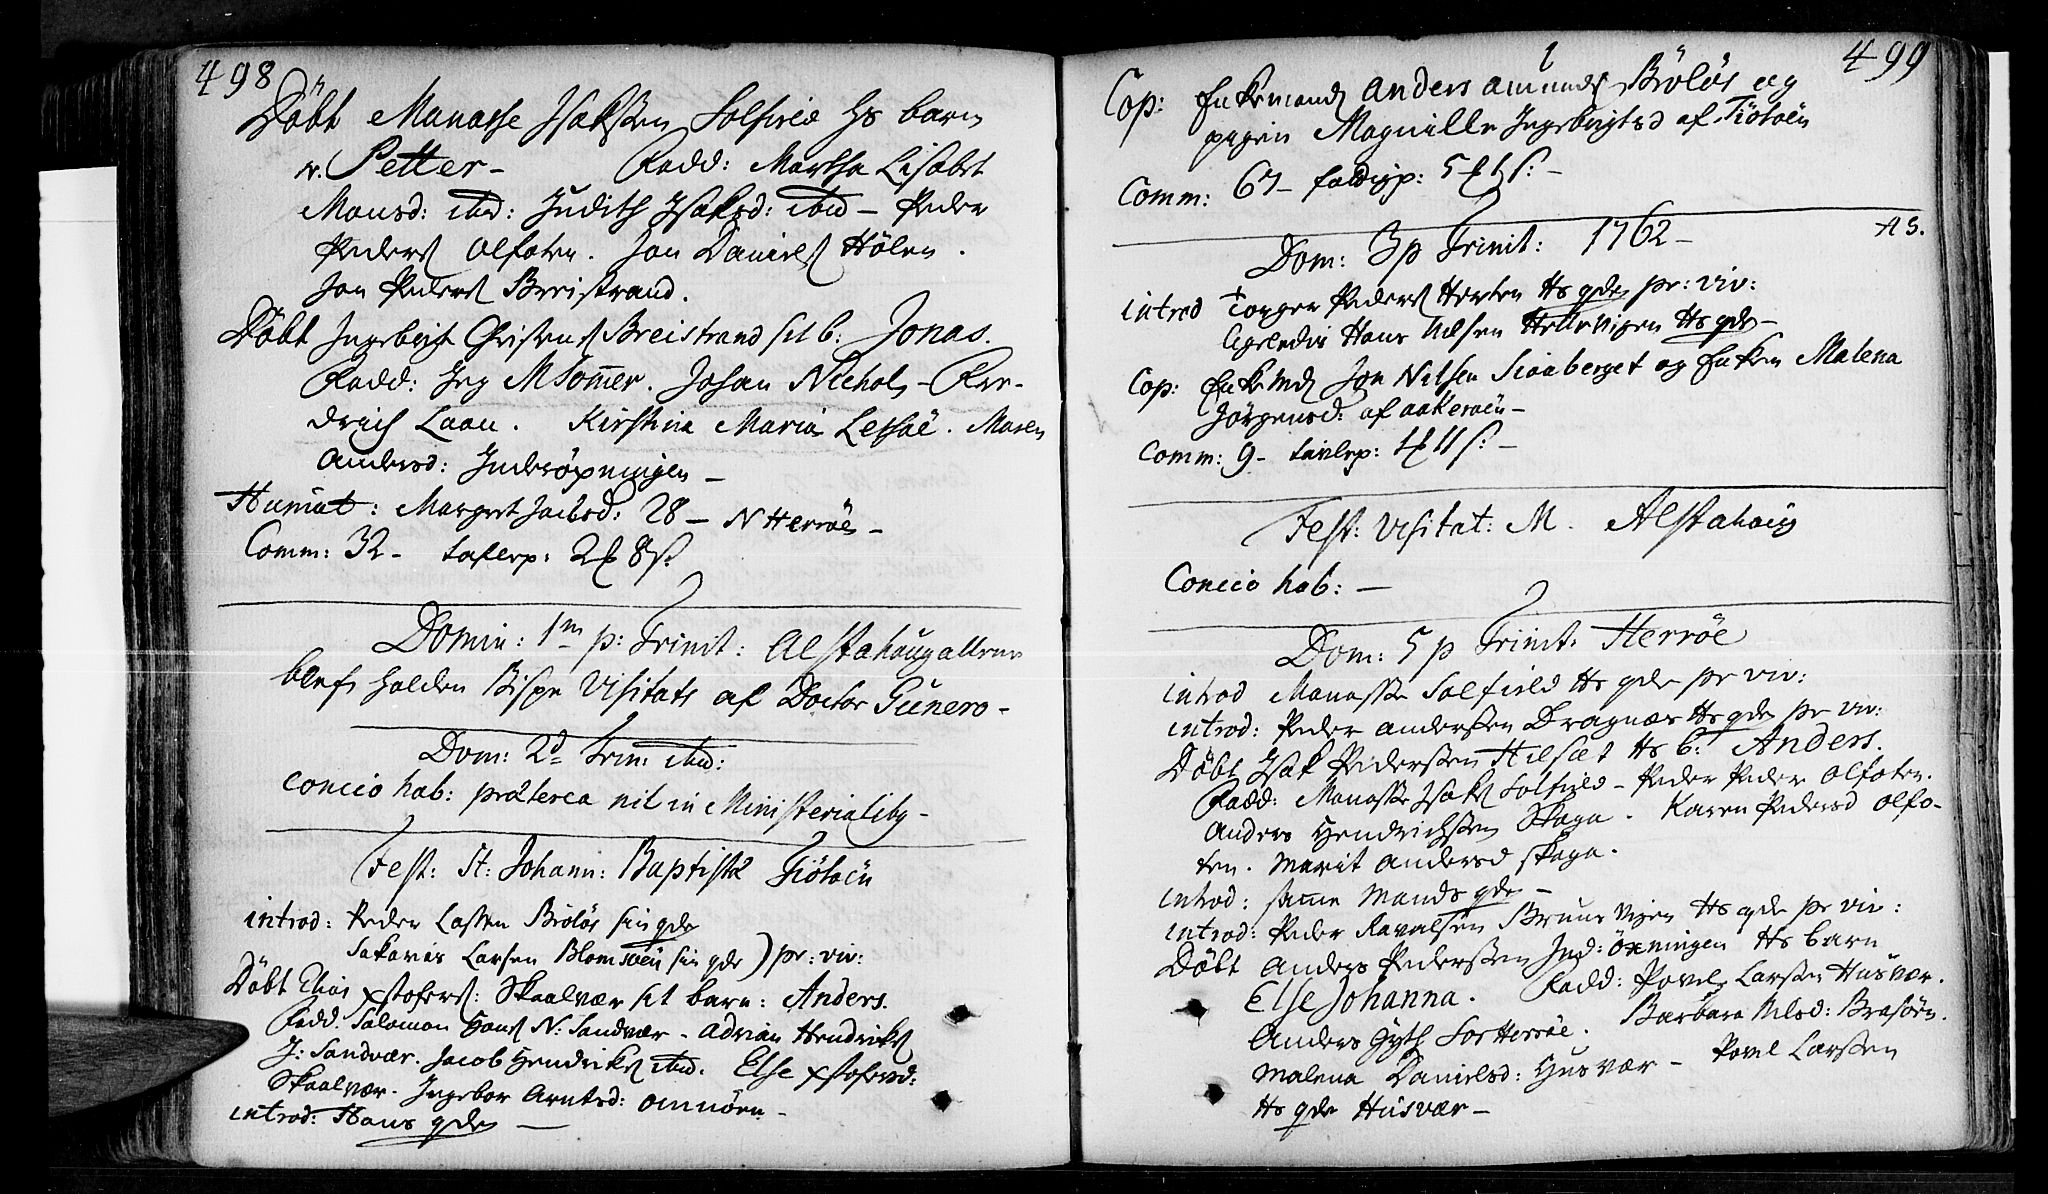 498
Döbt Manasse Isakssen Solfield Hs barn
n. Petter – Fadd: Martha Lisabet
Monsd: ibid: Judith Isaksd: ibid – Peder
Peders Olfoten. Jon Daniels Hölen.
Jon Peders Breistrand.
Döbt Ingebrigt Christens Breistrand sit b: Jonas.
Fadd: Jeg MSommer. Johan Nichols – Fre-
drich Laan. Kirstina Maria Lessöe. Maren
Andersd: Inderöxningen –
Humat: Margret Jacobsd: 28 – N Herröe –
Comm: 32 – taflep: 8 s.
Domin: 1m p: Trinit: Alstahoug
blef holden Bispe Visitats af Doctor Gunero –
Dom: 2d Trin: ibid:
Concio hab: præterea nil in Ministerialibg –
Fest: St: Johann: Baptistæ Tiötöen
introd: Peder Lassen Brölös sin qde
Sakarias Larsen Blomsöen sin qde) pr: viv:
Döbt Elias Xstofers: Skaalvær sit barn: Anders.
Fadd. Salomon Hans N: Sandvær – Adrian Hendriks
I: Sandvær. Jacob Hendriks ibid. Else Xstofersd:
Skaalvær. Ingebor Arntsd: Omnöen –
introd: Hans qde –
499
Cop: Enkemand Anders Amunds Brölös og
pigen Magnille Ingebrigtsd af Tiötöen
Comm: 67 –
Dom: 3 p Trinit: 1762 – AS.
introd Torger Peders Horten Hs qde pr: viv:
Ligeledis Hans Nilsen Hellevigen Hs qde –
Cop: Enkemd Jon Nilsen Siøaberget og Enken Malena
Jörgensd: af Aakeröen –
Comm: 9 – tavlep:
Fest: Visitat: M. Alstahoug
Concio hab: –
Dom: 5 p Trinit: Herröe
introd Manasse Solfield Hs qde pr viv:
introd: Peder Anderssen Dragnæs Hs qde pr viv:
Döbt Isak Pederssen Hilsæt Hs b: Anders.
Fadd: Manasse Isaks Solfield – Peder Peder Olfoten.
Anders Hendrichssen Skaga. Karen Pedersd Olfo-
ten. Marit Andersd Skaga.
introd: samme Mands qde –
introd: Peder Ravalsen Brunsvigen Hs qde pr viv:
Döbt Anders Pederssen Ind: öxningen Hs barn
Else Johanna. Fadd: Povel Larssen Husvær.
Anders Gyth Sör Herröe. Barbara Nilsd: Brasöen.
Malena Danielsd: Husvær – Povel Larssen
Hs qde Husvær –